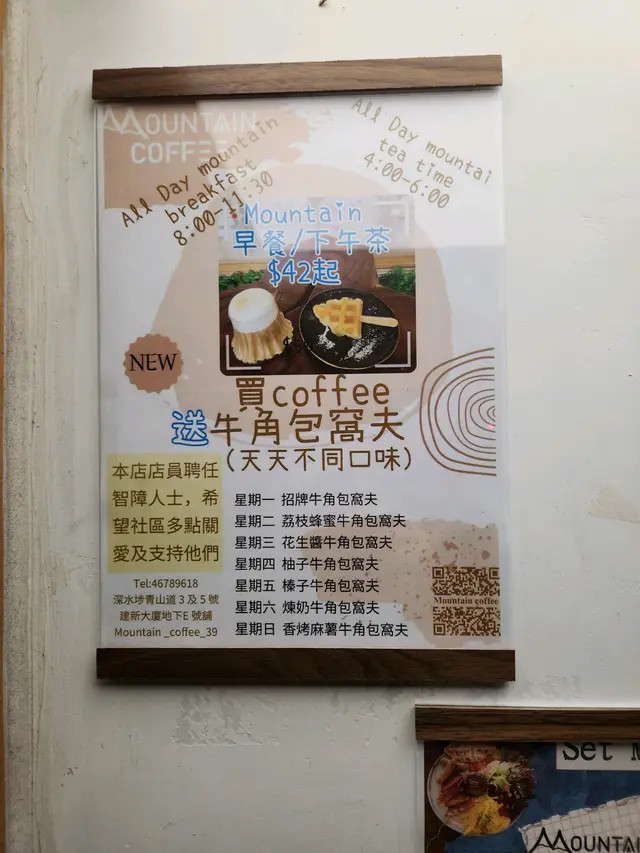 MOUNTAIN
COFFEE
All Day mountain
breakfast
8:00-11:30
All Day mountai
tea time
4:00-6:00
Mountain
早餐/下午茶
$42起
NEW
買coffee
送牛角包窩夫
(天天不同口味)
本店店員聘任
智障人士，希
望社區多點關
愛及支持他們
Tel:46789618
深水埗青山道 3 及 5 號
建新大廈地下E 號舖
Mountain _coffee_39
星期一 招牌牛角包窩夫
星期二 荔枝蜂蜜牛角包窩夫
星期三 花生醬牛角包窩夫
星期四 柚子牛角包窩夫
星期五 榛子牛角包窩夫
星期六 煉奶牛角包窩夫
星期日 香烤麻薯牛角包窩夫
Mountain coffee
Set
MOUNTA